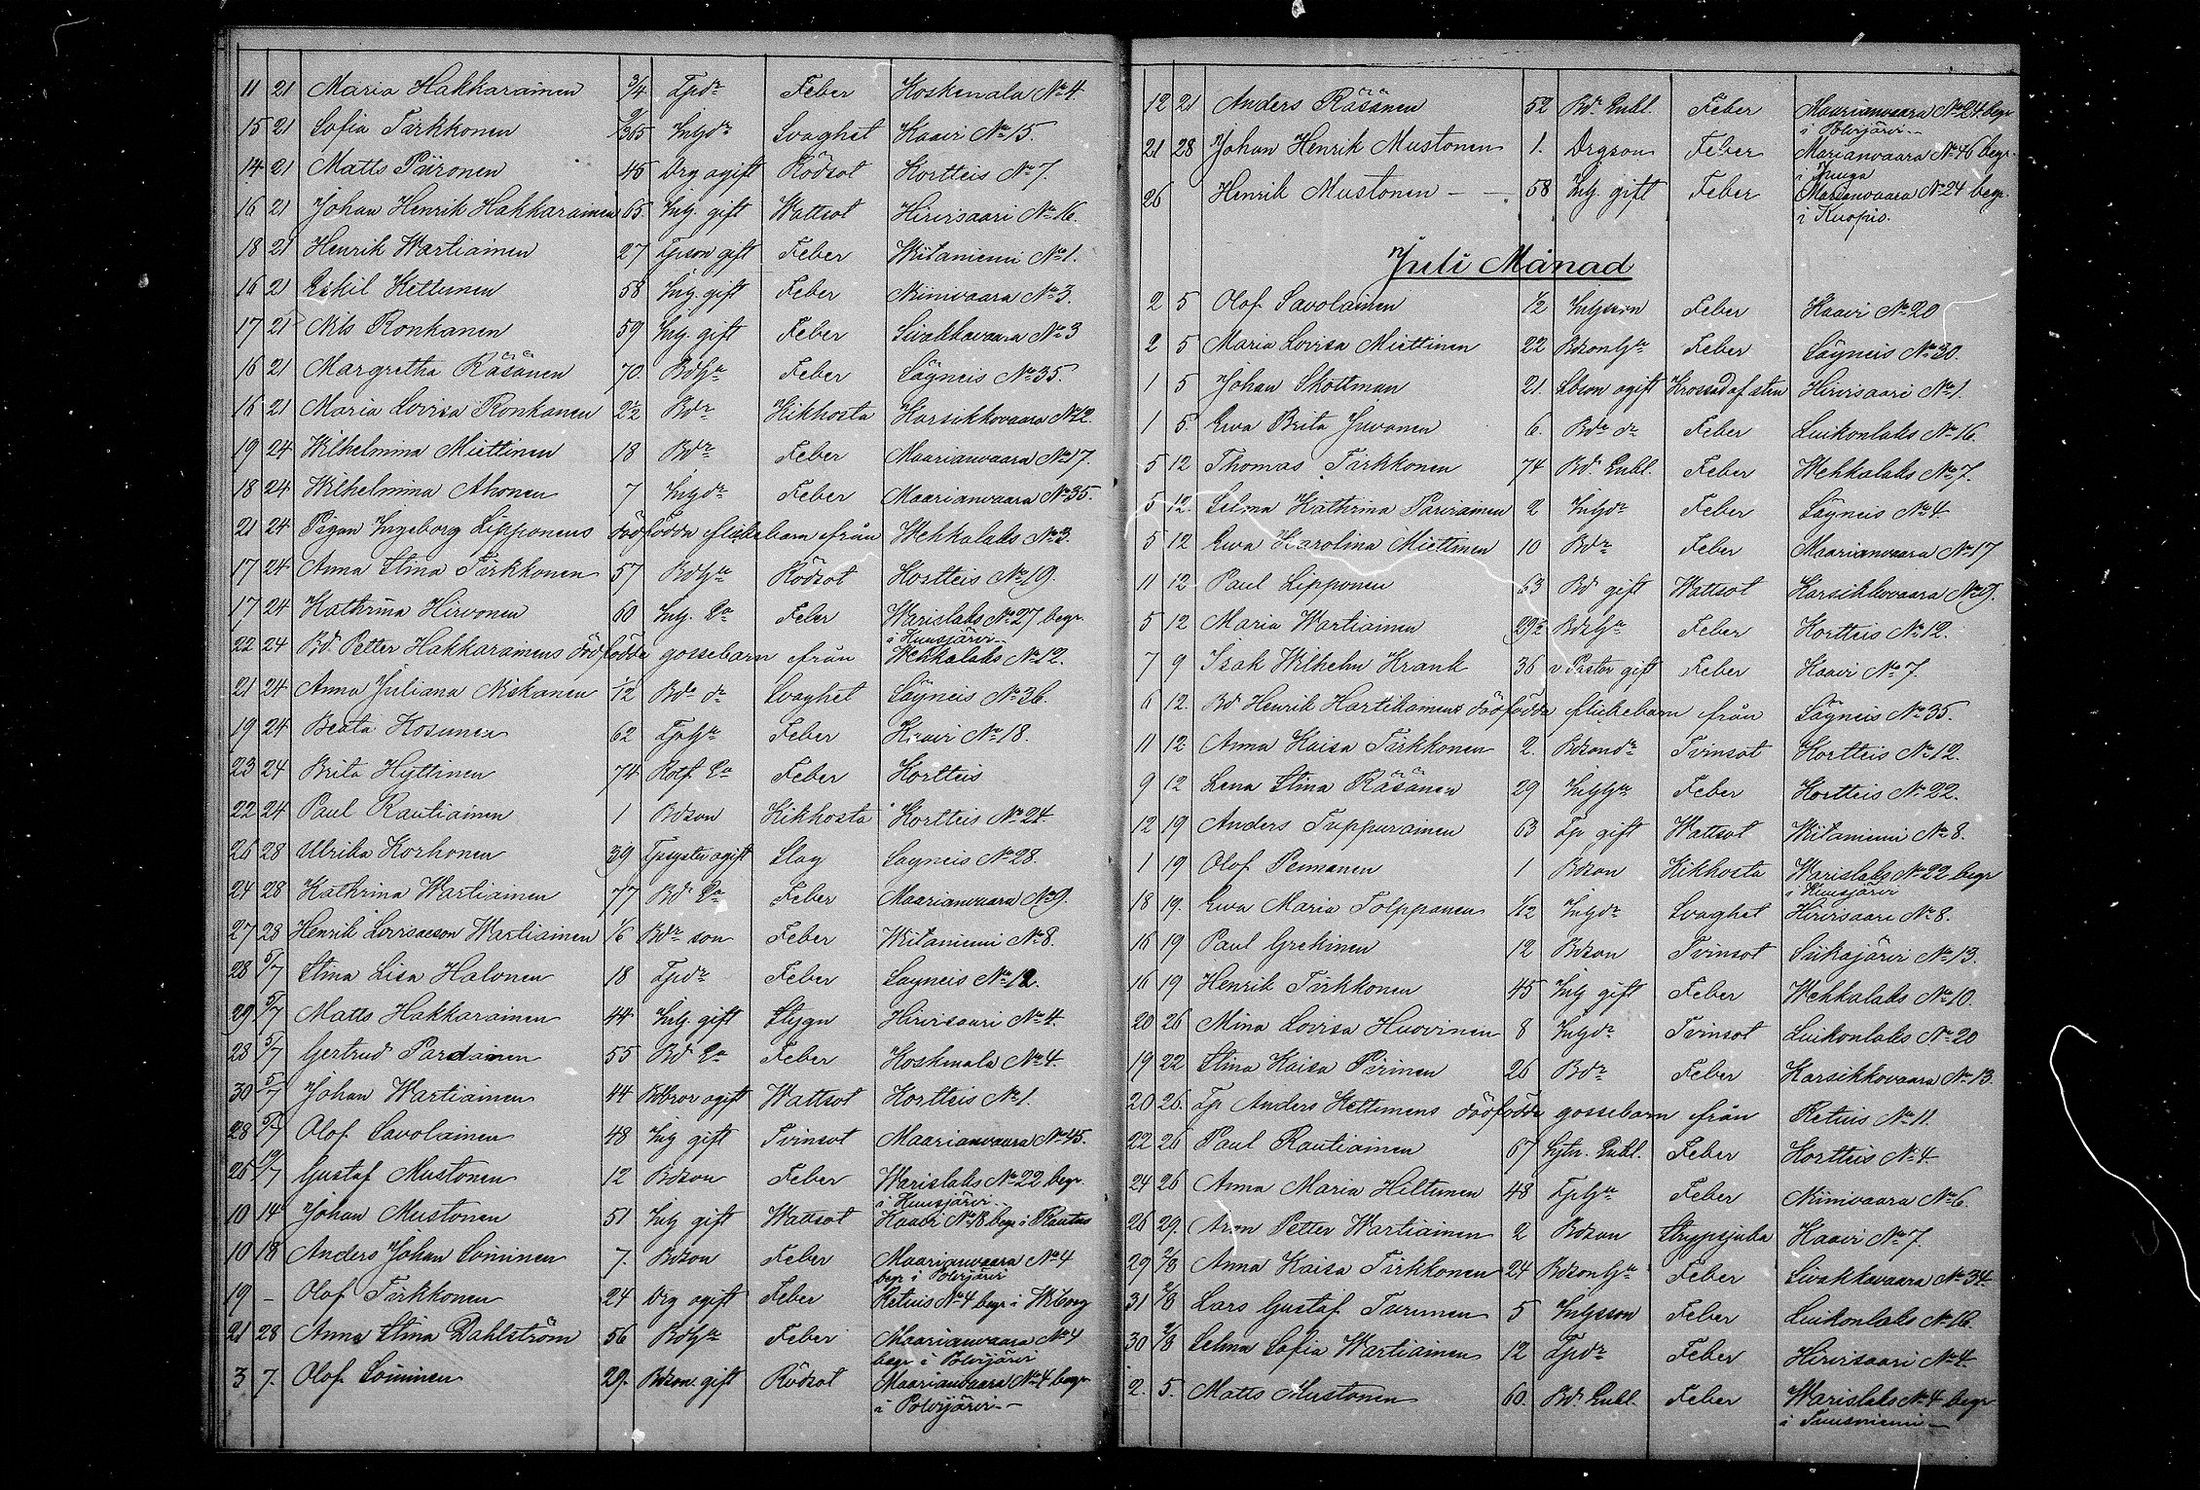 11 21 Maria Hakkarainen 3/4 Tpdr Feber Koskenala No 4.
15 21 Sofia Tirkkonen 9/365 Inhdr Svaghet Kaavi No 15.
14 21 Matts Piironen 45 Drg ogift Rödsot Kortteis No 7.
16 21 Johan Henrik Hakkarainen 65. Inh. gift Wattsot Hirvisaari No 16.
18 21 Henrik Wartiainen 27 Tpson gift Feber Wiitaniemi No 1.
16 21 Eskil Kettunen 58 Inh. gift Feber Niinivaara No 3.
17 21 Nils Ronkanen 59 Inh. gift Feber Sivakkavaara No 3
16 21 Margretha Räsänen 70. BdHu Feber Säyneis No 35.
16 21 Maria Lovisa Ronkanen 2½ Bdr Kikhosta Karsikkovaara No 12.
19 24 Wilhelmina Miettinen 18 Bdr Feber Maarianvaara No 17.
18 24 Wilhelmina Ahonen 7 Inhdr Feber Maarianvaara No 35.
21 24 Pigan Ingeborg Lipponens dödfödda flickebarn från Wehkalaks No 3.
17 24 Anna Stina Tirkkonen 57 BdHu Rödsot Kortteis No 19.
17 24 Kathrina Hirvonen 60 Inh. Ea Feber Warislaks No 27 begr.
i Kuusjärvi
22 24 Bd. Petter Hakkarainens dödfödda gossebarn från Wehkalaks No 12.
21 24 Anna Juliana Niskanen 1/12 Bdr dr Svaghet Säyneis No 36.
19 24 Beata Kosunen 62 TpHu Feber Kaavi No 18.
23 24 Brita Hyttinen 74 Rotf. Ea Feber Kortteis
22 24 Paul Rautiainen 1 Bdson Kikhosta Kortteis No 24.
26 28 Ullrika Korhonen 39 Tpsyster ogift Slag Sayneis No 28.
24 28 Kathrina Wartiainen 77 Bd Ea Feber Maarianvaara No 9.
27 28 Henrik Lovisaeson Wartiainen 1/6 Bdr son Feber Wiitaniemi No 8.
28 5/7 Stina Lisa Halonen 18 Tpdr Feber Sayneis No 12.
29 5/7 Matts Hakkarainen 44 Inh. gift Stygn Hirvisaari No 4.
28 5/7 Gertrud Pardainen 55 Bd Ea Feber Koskenala No 4.
30 5/7 Johan Wartiainen 44 Bdbror ogift Wattsot Kortteis No 1.
28 5/7 Olof Savolainen 48 Inh gift Tvinsot Maarianvaara No 45.
26 19/7 Gustaf Mustonen 12 Bdson Feber Warislaks No 22 begr.
i Kuusjärvi
10 14 Johan Mustonen 51 Inh gift Wattsot Kaavi No 18. begr i Rautus
10 18 Anders Johan Soininen 7. Bdson Feber Maarianvaara No 4
begr i Polvijärvi
19 – Olof Tirkkonen 24 Drg ogift Feber Retuis No 4 begr i Wiborg
21 28 Anna Stina Dahlström 56 BdHu Feber Maarianvaara No 4
begr i Polvijärvi
3 7. Olof Soininen 29. Bdson gift Rödsot Maarianvaara No 4 begr
i Polvijärvi
12 21 Anders Räsänen 52 Bd. Enkl. Feber Maarianvaara No 24. begr
i Polvijärvi
21 28 Johan Henrik Mustonen 1. Drgson Feber Marianvaara No 46 begr.
i Juuga
26 Henrik Mustonen – – 58 Inh. gift Feber Marianvaara No 24 begr.
i Kuopio.
Juli Månad
2 5 Olof Savolainen ½ Inhsson Feber Kaavi No 20
2 5 Maria Lovisa Miettinen 22 BdsonHu Feber Säyneis No 30.
1 5 Johan Skottman 21. Sbson ogift Krossad af sten Hirvisaari No 1.
1 5. Ewa Brita Juvonen 6. Bdr dr Feber Luikonlaks No 16.
5 12 Thomas Tirkkonen 74 Bd. Enkl. Feber Wehkalaks No 7.
5 12. Selma Kathrina Parviainen 2 Inhdr Feber Säyneis No 4.
5 12 Ewa Karolina Miettinen 10 Bdr Feber Maarianvaara No 17
11 12 Paul Lipponen 63 Bd gift Wattsot Karsikkovaara No 9.
5 12 Maria Wartiainen 29½ BdsHu Feber Kortteis No 12.
7 9 Isak Wilhelm Krank 36 v Pastor gift Feber Kaavi No 7.
6 12. Bd Henrik Hartikainens dödfödda flickebarn från Säyneis No 35.
11 12 Anna Kaisa Tirkkonen 2. Bdsondr Tvinsot Kortteis No 12.
9 12 Lena Stina Räsänen 29 InhHu Feber Kortteis No 22.
12 19 Anders Tuppurainen 63 Tp gift Wattsot Wiitaniemi No 8.
1 19 Olof Pennanen 1 Bdson Kikhosta Warislaks No 22 begr
i Kuusjärvi
18 19. Ewa Maria Tolppanen 1/12 Inhdr Svaghet Hirvisaari No 8.
16 19 Paul Grekinen 12 Bdson Tvinsot Siikajärvi No 13.
16 19 Henrik Tirkkonen 45 Inh gift Feber Wehkalaks No 10.
20 26 Mina Lovisa Huovinen 8 Inhdr Tvinsot Luikonlaks No 20
19 22 Stina Kaisa Piirinen 26 Bdr Feber Karsikkovaara No 13.
20 26. Tp Anders Kettunens dödfödda gossebarn från Retuis No 11.
22 26 Paul Rautiainen 67 Enkl. Feber Kortteis No 4.
24 26 Anna Maria Hiltunen 48 TpHu Feber Niinivaara No 6.
26 29. Aron Petter Wartiainen 2 Bdson Strypsjuka Kaavi No 7.
29 2/8 Anna Kaisa Tirkkonen 24 BdsonHu Feber Sivakkavaara No 34.
31 2/8 Lars Gustaf Turunen 5 Inhsson Feber Luikonlaks No 16.
30 2/8 Selma Sofia Wartiainen 12 Tpdr Feber Hirvisaari No 4.
2. 5. Matts Mustonen 60. Bd. Enkl. Feber Warislaks No 4 begr
i Tuusniemi